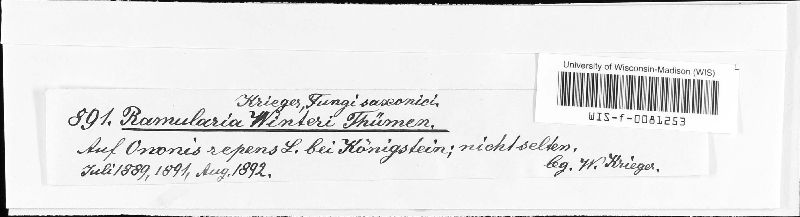 Krieger, Fungi saxonici.
891. Ramularia Winteri Thümen.
Auf Ononis repens L. bei Königstein; nicht selten.
Juli 1889, 1891, Aug. 1892.
lg. W. Krieger.
University of Wisconsin-Madison (WIS)
WIS-f-0081253